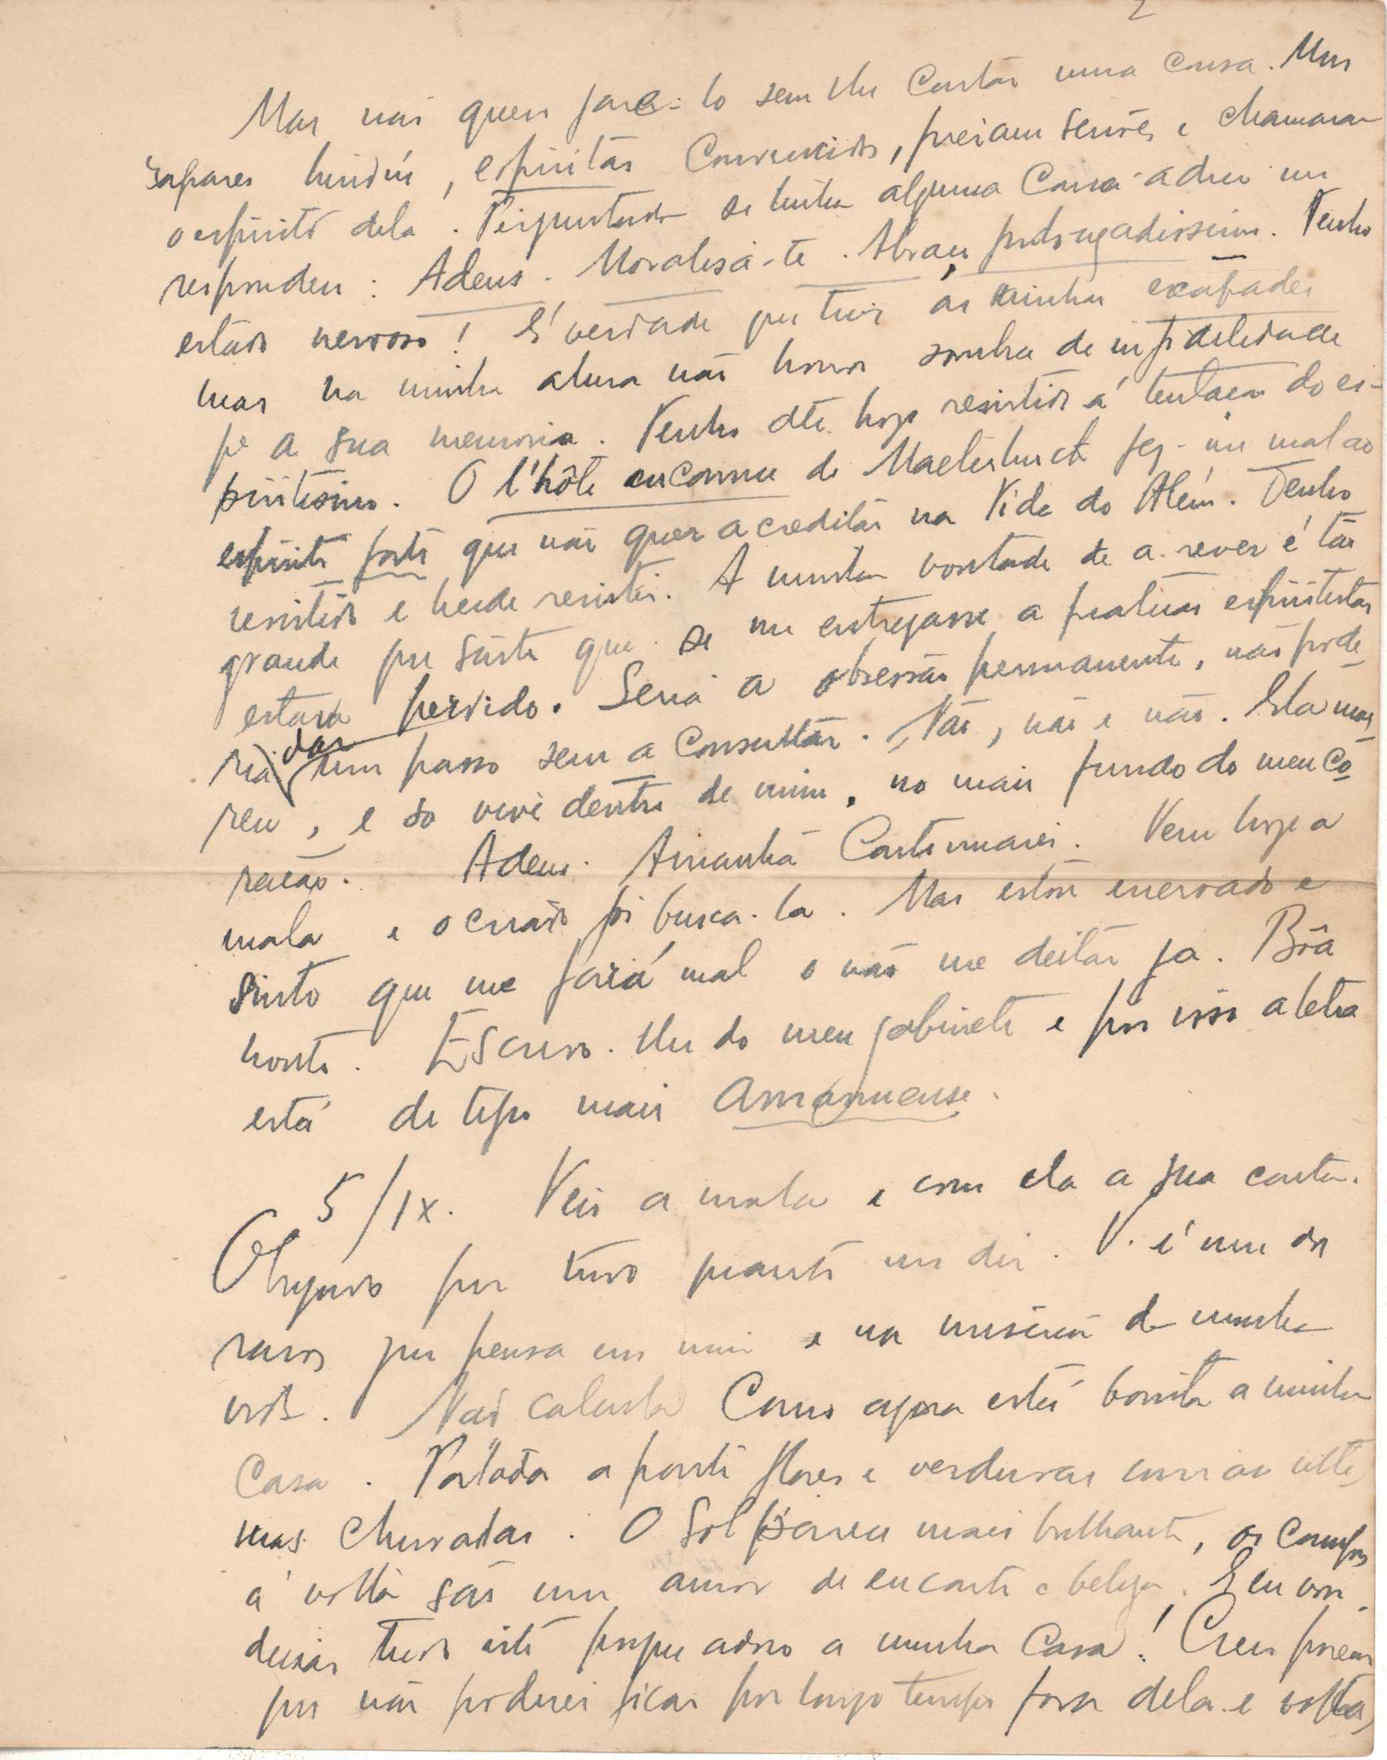 2
Mas não quero faze-lo sem lhe contar uma cousa. Uns
rapazes , espiritas convencidos, fizeram sessões e chamaram
o espirito dela. Perguntada se tinha alguma cousa a dizer
respondeu: Adeus. Moralisa-te. Abraça . Tenho
estado nervoso! É verdade que tive as minhas escapadas
mas na minha alma não houve sombra de infidelidade
á sua memoria. Tenho até hoje resistido á tentação do es-
piritismo. O l'hôte inconnu de Maeterlinck fez-me mal ao
espirito forte que não quer acreditar na Vida do Além. Tenho
resistido e heide resistir. A minha vontade de a rever é tão
grande que sinto que se me entregasse a praticas espiritistas
estava perdido. Seria a obsessão permanente, não pode-
ria dar um passo sem a consultar. Não, não e não. Ela mor-
reu, e só vive dentro de mim, no mais fundo do meu co-
ração. Adeus. Amanhã continuarei. Vem hoje a
mala e o criado foi busca-la. Mas estou enervado e
sinto que me fará mal o não me deitar já. Bôa
noite. Escrevo-lhe do meu gabinete e por isso a letra
está de tipo mais amanuense.
5/IX. Veio a mala e com ela a sua carta.
Obrigado por tudo quanto me diz. V. é um dos
raros que pensa em mim e na miseria da minha
vida. Não calcula como agora está bonita a minha
casa. a ponte flores e verduras com as ulti-
mas chuvadas. O Sol parece mais brilhante, os campos
á volta são um amor de encanto e beleza. E eu vou
deixar tudo isto porque adoro a minha casa! Creio porem
que não poderei ficar por longo tempo fora dela e voltar